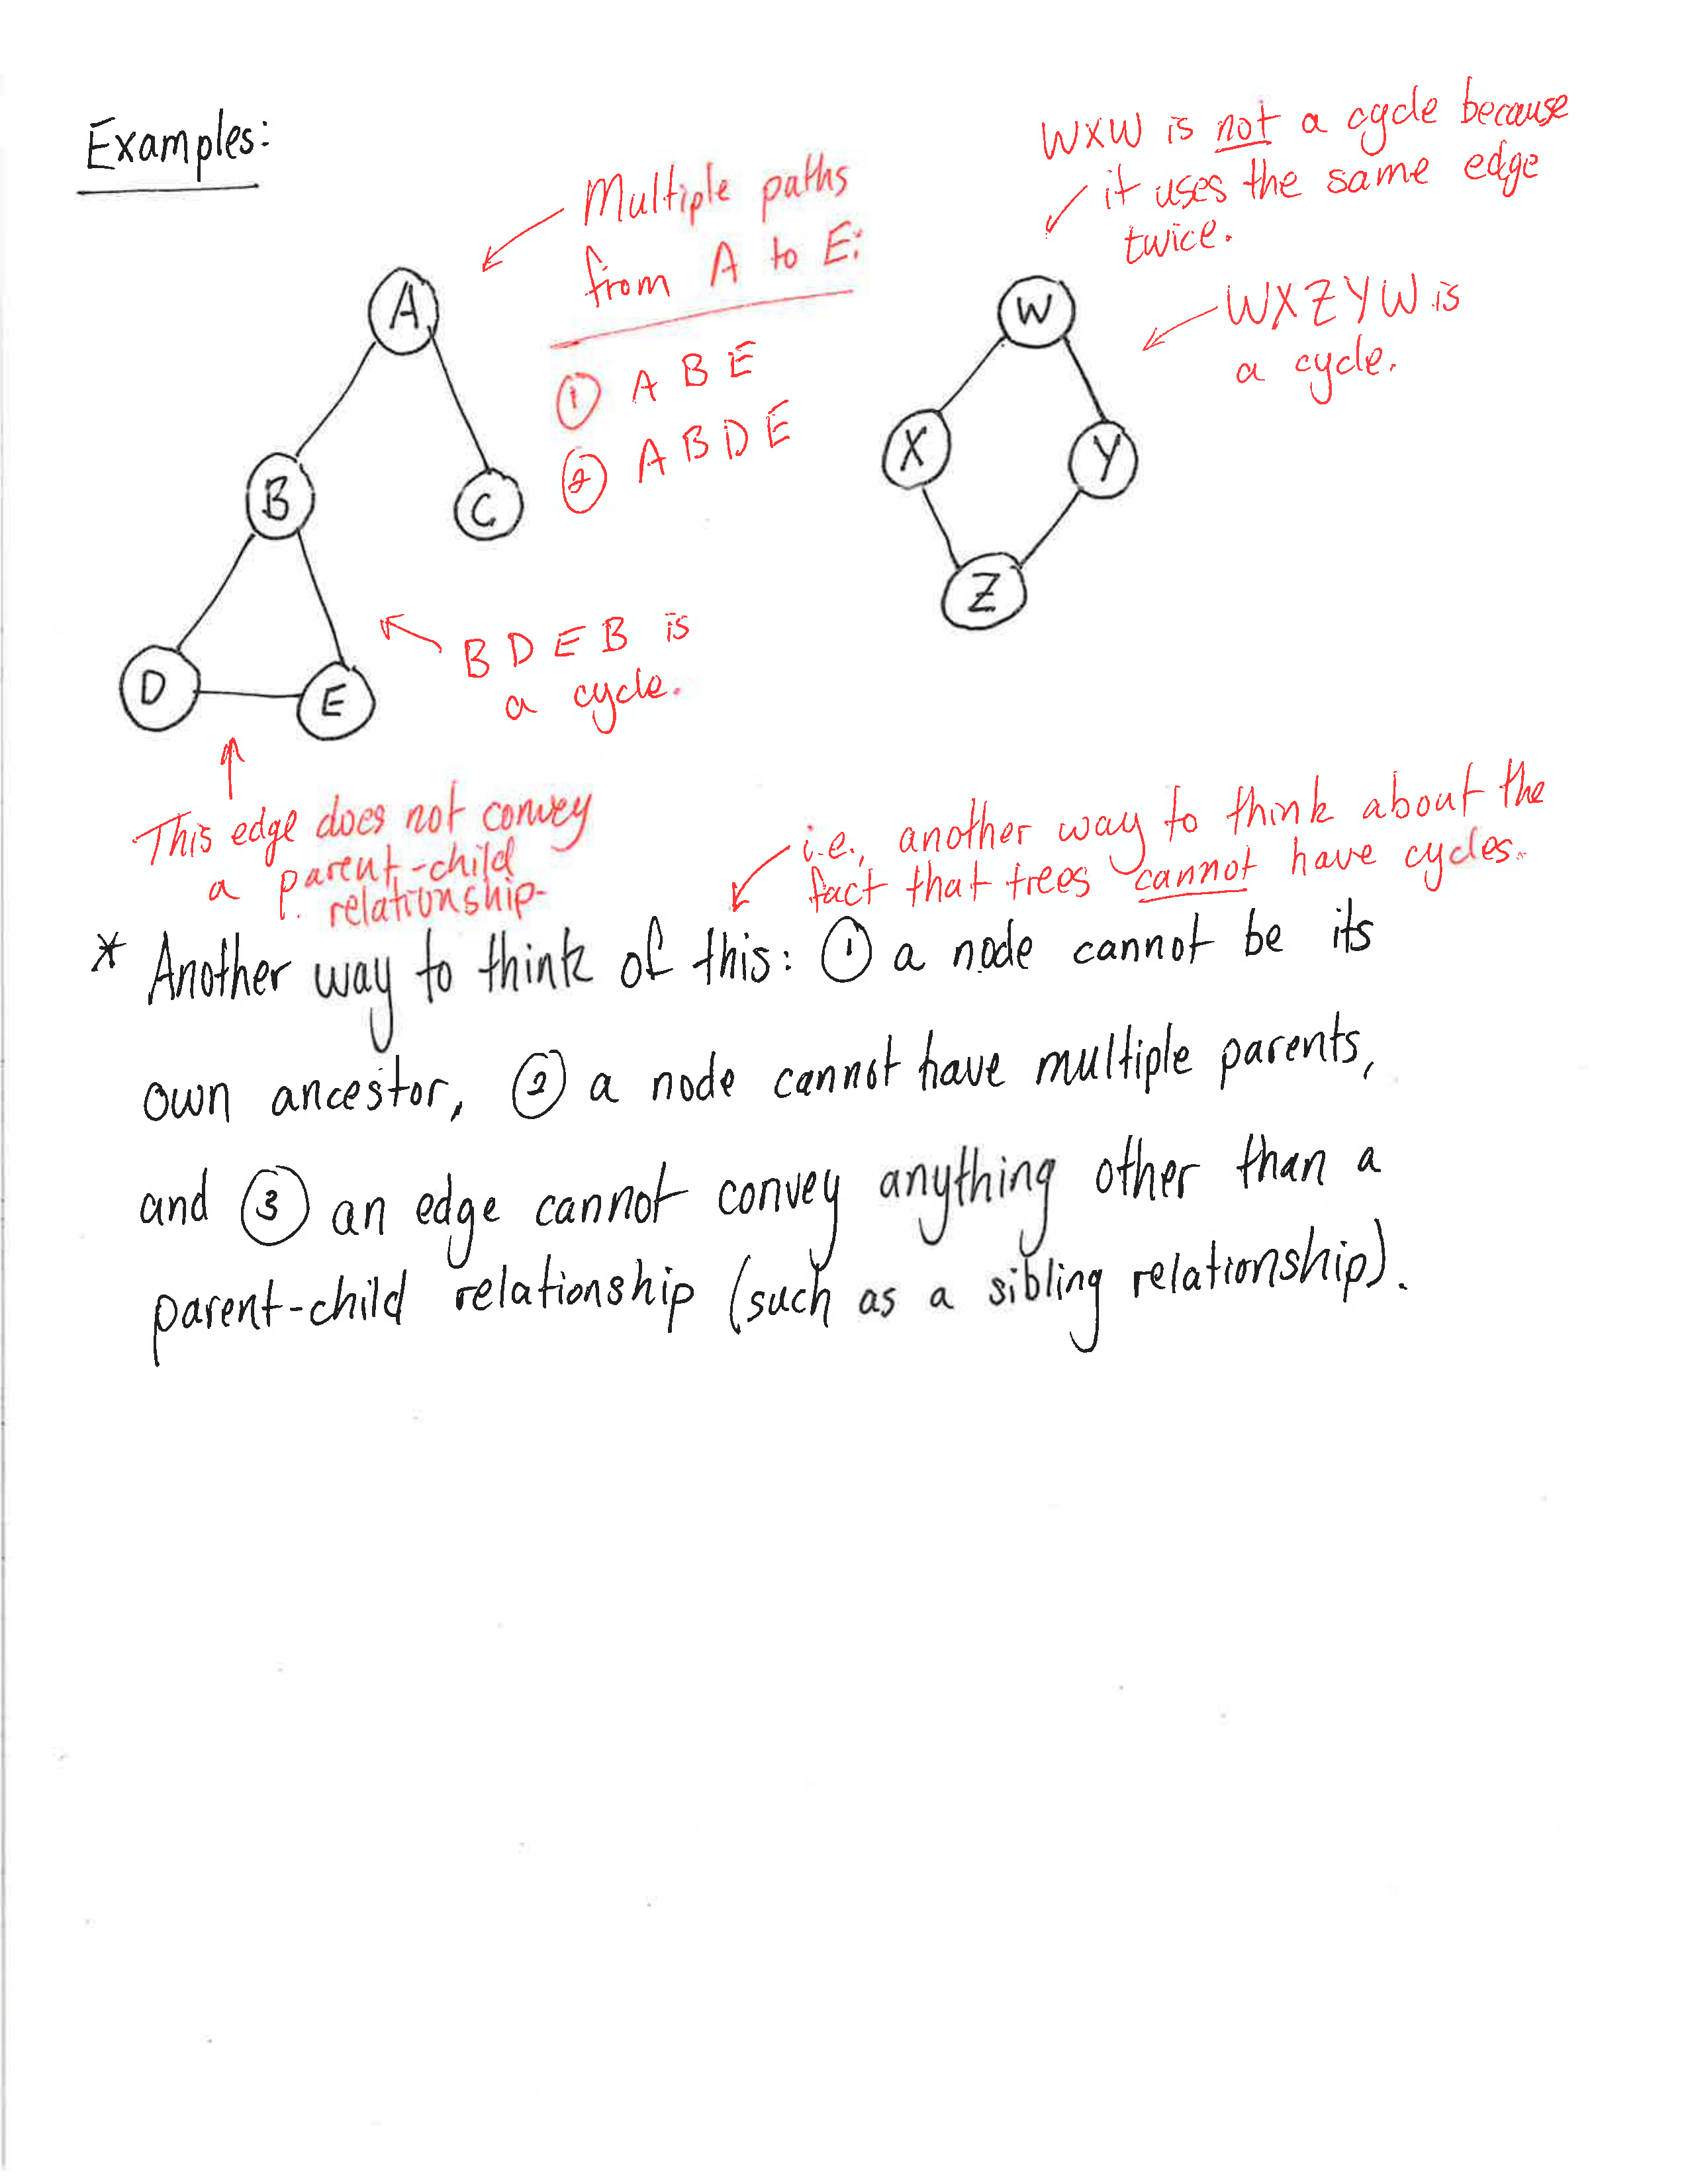 Examples:
Multiple paths
from A to E:
① A B E
② A B D E
A
B
C
D
E
B D E B is
a cycle.
This edge does not convey
a parent-child
relationship.
WXW is not a cycle because
it uses the same edge
twice.
WXZYW is
a cycle.
W
X
Y
Z
i.e., another way to think about the
fact that trees cannot have cycles.
* Another way to think of this: ① a node cannot be its
own ancestor, ② a node cannot have multiple parents,
and ③ an edge cannot convey anything other than a
parent-child relationship (such as a sibling relationship).